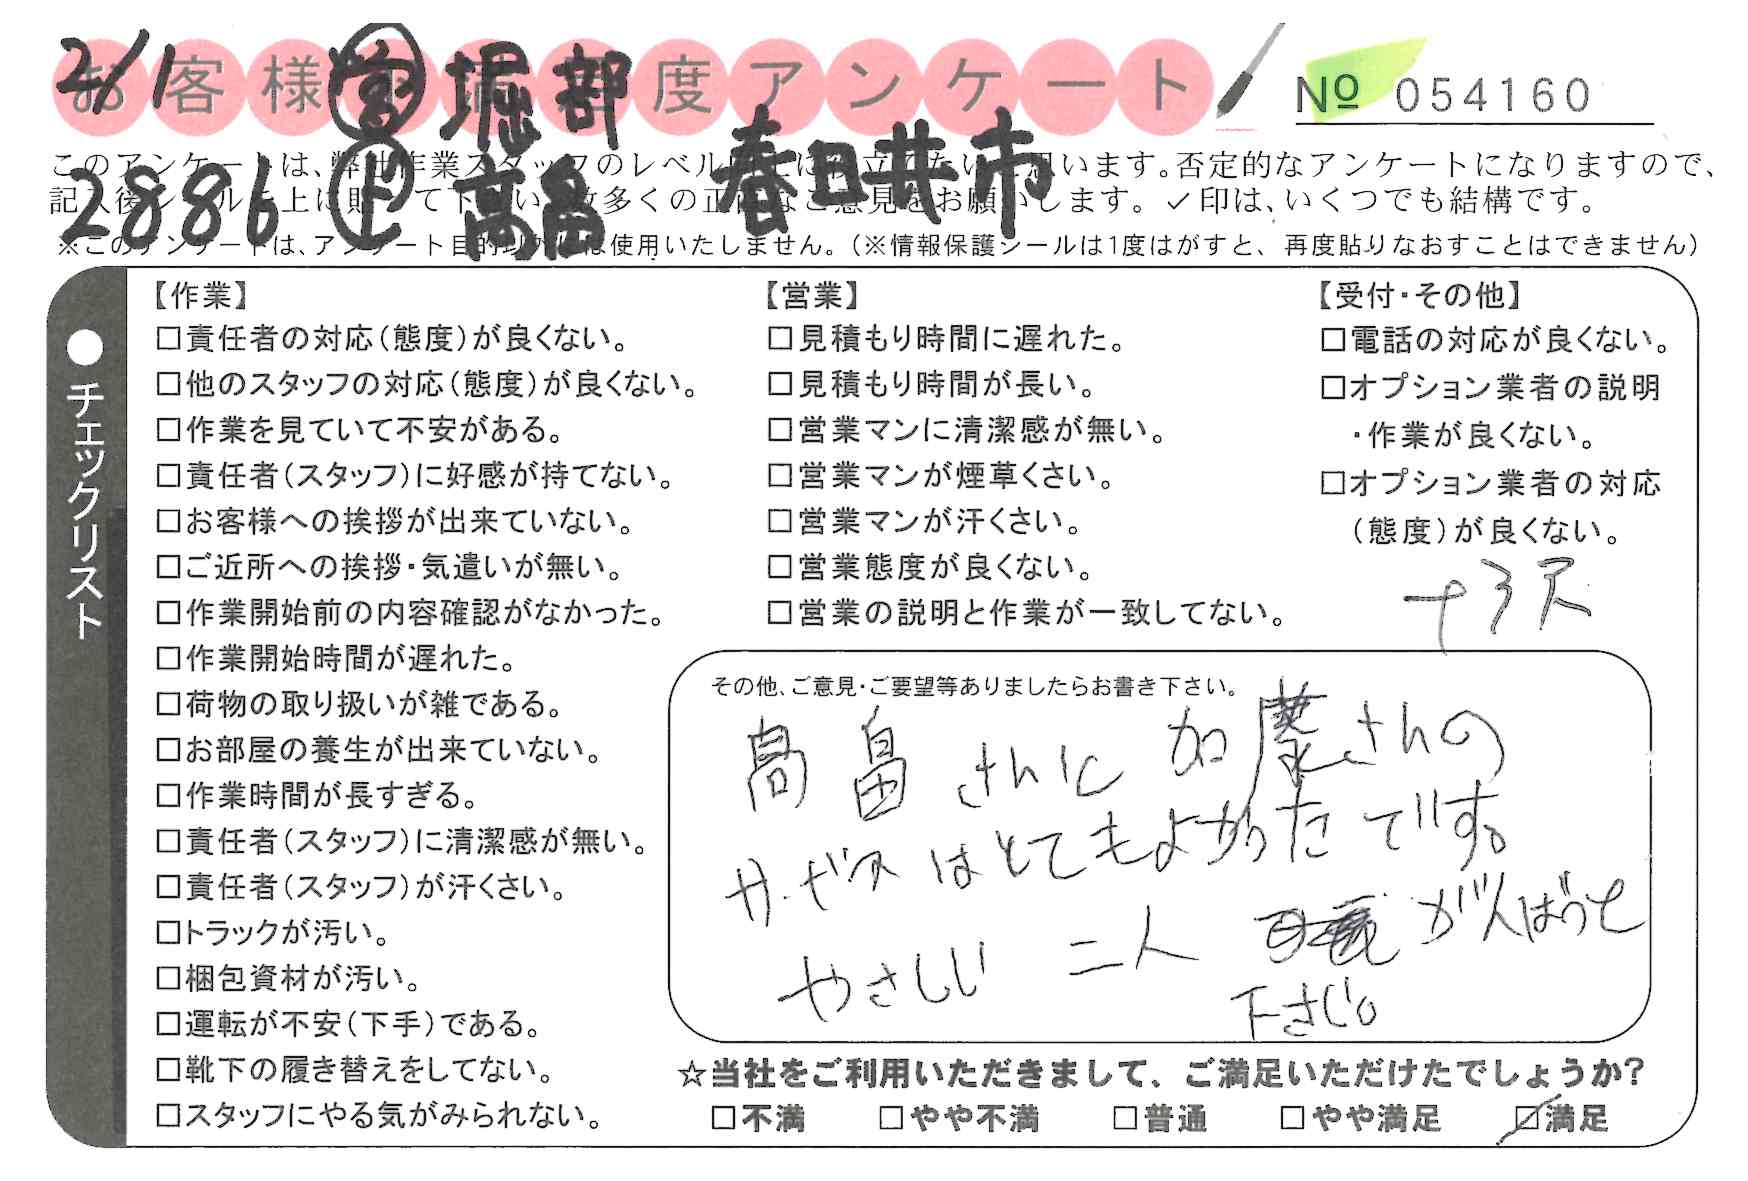 2/1 ㊂営 堀部
お客様満足度アンケート
№ 054160
2886 高畠 春日井市
このアンケートは、弊社作業スタッフのレベル向上に役立てたいと思います。否定的なアンケートになりますので、
記入後シールを上に貼って下さい。数多くの正直なご意見をお願いします。✓印は、いくつでも結構です。
※このアンケートは、アンケート目的以外には使用いたしません。（※情報保護シールは1度はがすと、再度貼りなおすことはできません）
●チェックリスト
【作業】
□責任者の対応（態度）が良くない。
□他のスタッフの対応（態度）が良くない。
□作業を見ていて不安がある。
□責任者（スタッフ）に好感が持てない。
□お客様への挨拶が出来ていない。
□ご近所への挨拶・気遣いが無い。
□作業開始前の内容確認がなかった。
□作業開始時間が遅れた。
□荷物の取り扱いが雑である。
□お部屋の養生が出来ていない。
□作業時間が長すぎる。
□責任者（スタッフ）に清潔感が無い。
□責任者（スタッフ）が汗くさい。
□トラックが汚い。
□梱包資材が汚い。
□運転が不安（下手）である。
□靴下の履き替えをしてない。
□スタッフにやる気がみられない。
【営業】
□見積もり時間に遅れた。
□見積もり時間が長い。
□営業マンに清潔感が無い。
□営業マンが煙草くさい。
□営業マンが汗くさい。
□営業態度が良くない。
□営業の説明と作業が一致してない。
【受付・その他】
□電話の対応が良くない。
□オプション業者の説明
・作業が良くない。
□オプション業者の対応
（態度）が良くない。
その他、ご意見・ご要望等ありましたらお書き下さい。
高畠さんと加藤さんの
サービスはとてもよかったです。
やさしい二人 がんばって
下さい。
☆当社をご利用いただきまして、ご満足いただけたでしょうか?
□不満 □やや不満 □普通 □やや満足 ☑満足